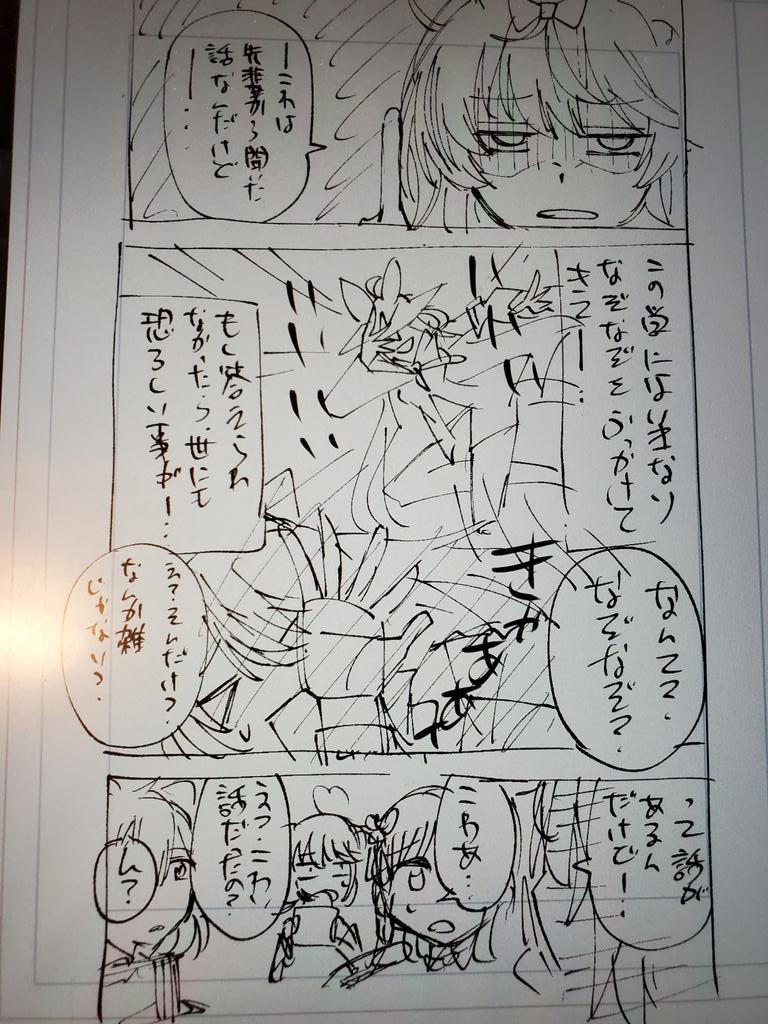 ーこれは
先輩から聞いた
話なんだけど
ー…
この学にはいきなり
なぞなぞをふっかけて
きてー…
もし答えられ
なかったら、世にも
恐ろしい事がー…
なんで?
なぞなぞ?
きゃああああ
え?それだけ?
なんか雑
じゃない?
って話が
あるん
だけどー!
こわぁ…
え?これ
話だったの?
ん?